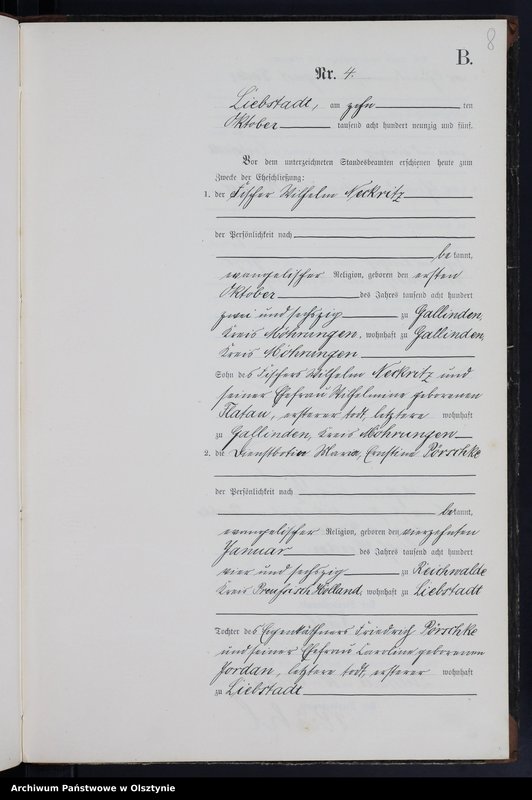 8
B.
Nr. 4.
Liebstadt, am zehn ten
Oktober tausend acht hundert neunzig und fünf.
Vor dem unterzeichneten Standesbeamten erschienen heute zum
Zwecke der Eheschließung:
1. der Fischer Wilhelm Neckritz
der Persönlichkeit nach
be kannt,
evangelischer Religion, geboren den ersten
Oktober des Jahres tausend acht hundert
zwei und sechszig zu Gallinden,
Kreis Mohrungen, wohnhaft zu Gallinden,
Kreis Mohrungen
Sohn des Fischers Wilhelm Neckritz und
seiner Ehefrau Wilhelmine geborenen
Flatau, ersterer todt, letztere wohnhaft
zu Gallinden, Kreis Mohrungen
2. die Dienstbotin Maria, Ernstine Pörschke
der Persönlichkeit nach
bekannt,
evangelischer Religion, geboren den vierzehnten
Januar des Jahres tausend acht hundert
vier und sechszig zu Reichwalde
Kreis Preußisch Holland, wohnhaft zu Liebstadt
Tochter des Eigenkäthners Friedrich Pörschke
und seiner Ehefrau Caroline geborenen
Jordan, letztere todt, ersterer wohnhaft
zu Liebstadt
Archiwum Państwowe w Olsztynie